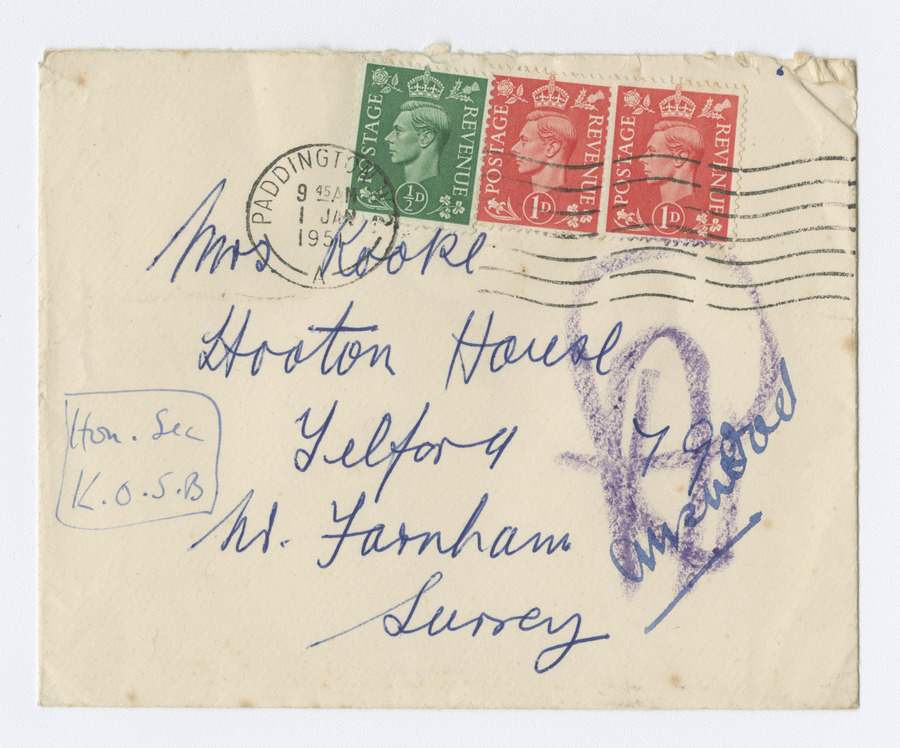 POSTAGE REVENUE ½D
POSTAGE REVENUE 1D
POSTAGE REVENUE 1D
PADDINGTON
9 45 AM
1 JAN
195
A
Mrs Rooke
Hooton House
Telford
Nr. Farnham
Surrey
Hon. Sec
K.O.S.B